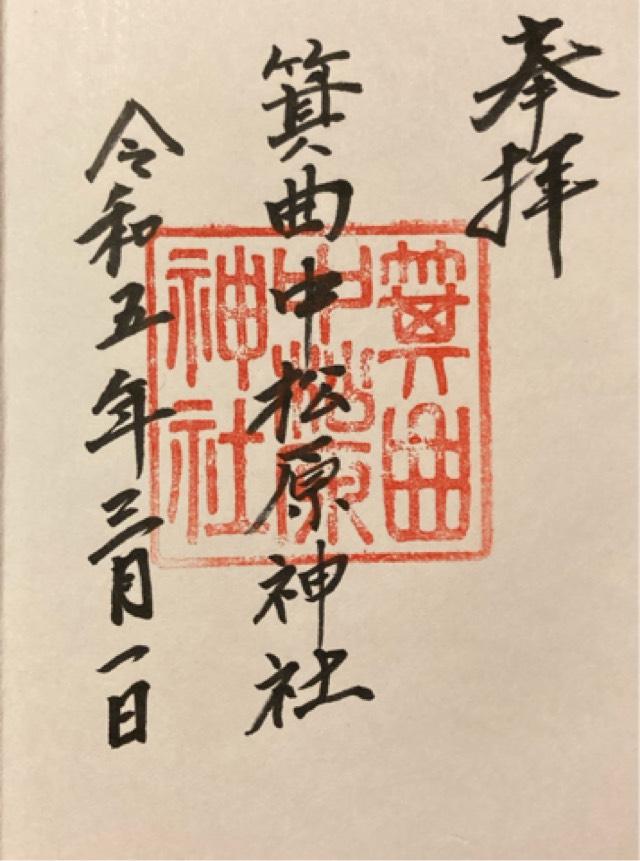 奉拝
箕曲中松原神社
令和五年三月一日
箕曲
中松原
神社